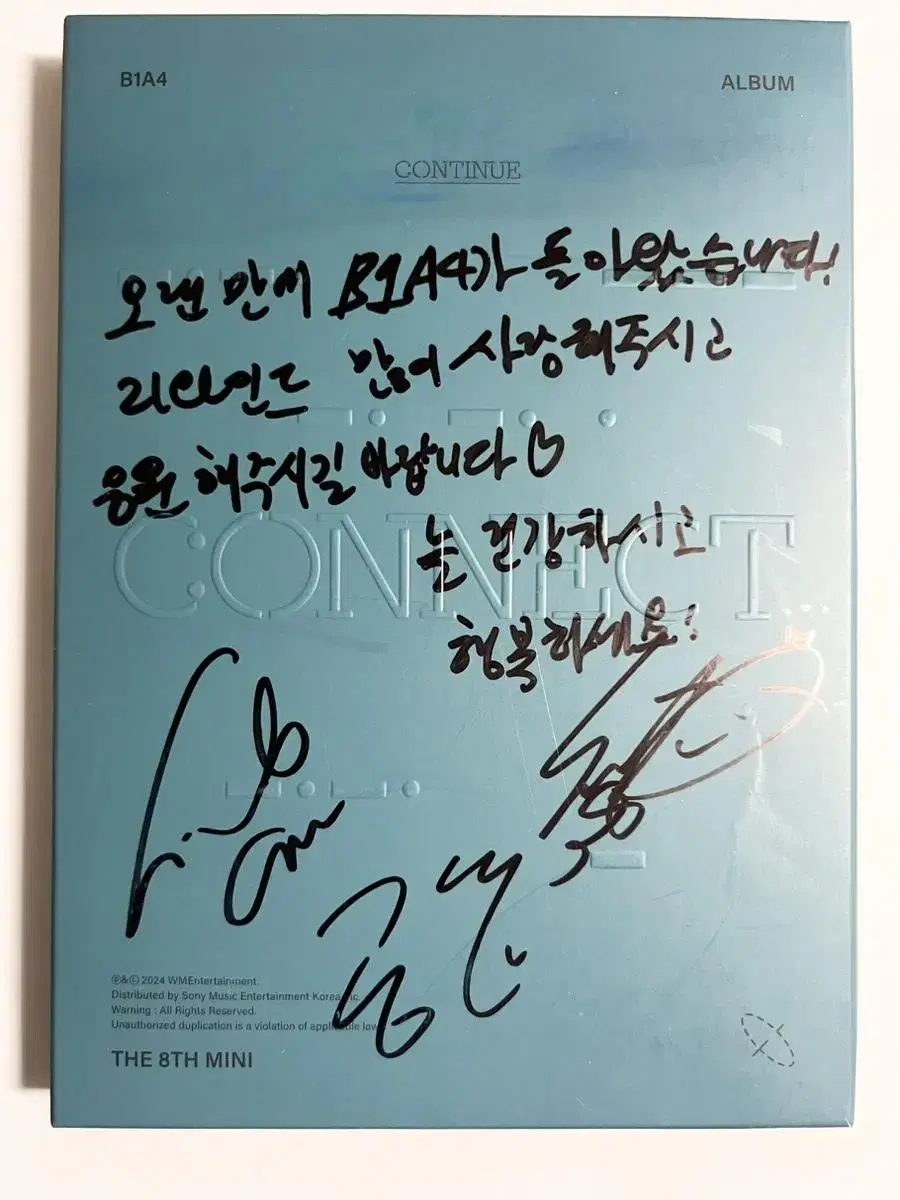 B1A4
ALBUM
CONTINUE
오랜만에 B1A4가 돌아왔습니다!
리와인드 많이 사랑해주시고
응원 해주시길 바랍니다♡
늘 건강하시고
행복하세요!
CONNECT
Ⓟ&Ⓒ 2024 WMEntertainment.
Distributed by Sony Music Entertainment Korea Inc.
Warning : All Rights Reserved.
Unauthorized duplication is a violation of applicable law
THE 8TH MINI